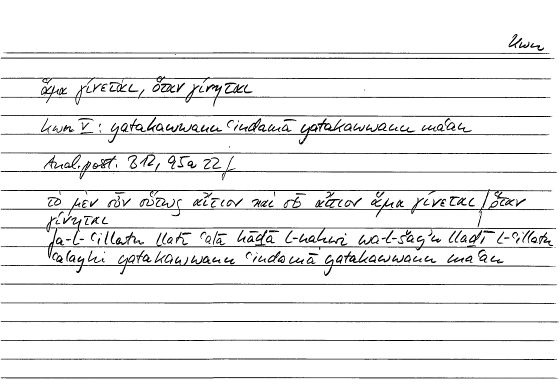 kwn
ἅμα γίνεται, ὅταν γίνηται
kwn V : yatakawwanu ʿindamā yatakawwanu maʿan
Anal. post. B 12, 95a 22 f
τὸ μὲν οὖν οὕτως αἴτιον καὶ οὗ αἴτιον ἅμα γίνεται / ὅταν
γίνηται
fa-l-ʿillatu llatī ʿalā hāḏā l-naḥwi wa-l-šayʾu llaḏī l-ʿillatu
ʿalayhi yatakawwanu ʿindamā yatakawwanu maʿan